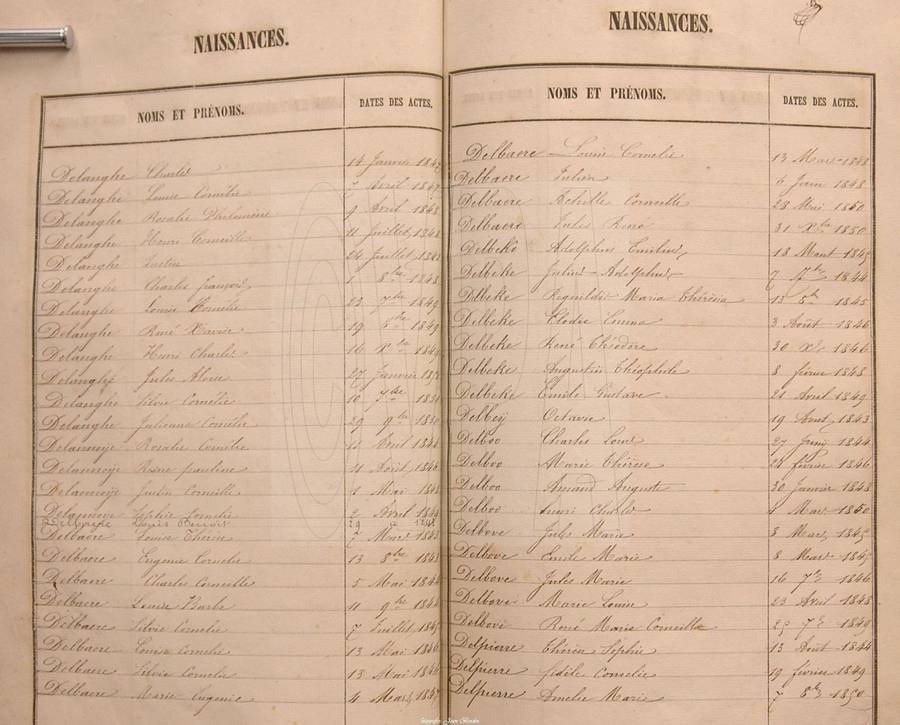 NAISSANCES.
NOMS ET PRÉNOMS. DATES DES ACTES.
Delanghe Charles 14 Janvier 1847
Delanghe Louise Cornelie 7 Avril 1847
Delanghe Rosalie Philomène 9 Avril 1848
Delanghe Henri Corneille 11 Juillet 1848
Delanghe 24 Juillet
Delanghe Charles françois 1 8bre 1848
Delanghe Louise Cornelie 23 7bre 1849
Delanghe René Xavier 19 1849
Delanghe Henri Charles 16 Xbre 1849
Delanghe Jules 27 Janvier
Delanghe Silvie Cornelie 10
Delanghe Julienne Cornelie 29 9bre 1850
Rosalie Cornelie Avril
pauline Avril 1846
Corneille Mai 1848
Sophie Cornelie 2 Avril 1844
Louis Benoit 29
Delbaere Louise Thérèse 7 Mars 1843
Delbaere Eugenie Cornelie 13 8bre 1843
Delbaere Charles Corneille 5 Mai 1844
Delbaere Louise Barbe 11 9bre 1844
Delbaere Silvie Cornelie 7 Juillet 1845
Delbaere Louise Cornelie 13 Mai 1846
Delbaere Silvie Cornelie 13 Mai 1846
Delbaere Marie Eugenie 4 Mars 1847
NAISSANCES.
NOMS ET PRÉNOMS. DATES DES ACTES.
Delbaere Louise Cornelie 13 Mars 1848
Delbaere Julien 6 Juin 1848
Delbaere Achille Corneille 28 Mai 1850
Delbaere Jules René 31 Xbre 1850
Delbeke Adolphine Emilie 18 1843
Delbeke Julien Adolphe 7 7bre 1844
Delbeke Regnildis Maria Thérésia 13 1845
Delbeke Elodie Emma 3 Août 1846
Delbeke René Théodore 30 Xbre 1846
Delbeke Augustin Théophile 8 fevrier 1848
Delbeke Emile Gustave 21 Avril 1849
Delbeij Octavie 19 Aout 1843
Delboo Charles Louis 27 Juin 1844
Delboo Marie Thérèse 24 fevrier 1846
Delboo Amand Auguste 30 Janvier 1848
Delboo Henri Charles Mars 1850
Delbove Jules Marie 3 Mars 1845
Delbove Emile Marie 8 Mars 1845
Delbove Jules Marie 16 7bre 1846
Delbove Marie Louise 23 Avril 1848
Delbove René Marie Corneille 25 7bre 1849
Delpierre Thérèse Sophie 13 Août 1844
Delpierre fidèle Cornelie 19 février 1849
Delpierre Amelie Marie 7 8bre 1850